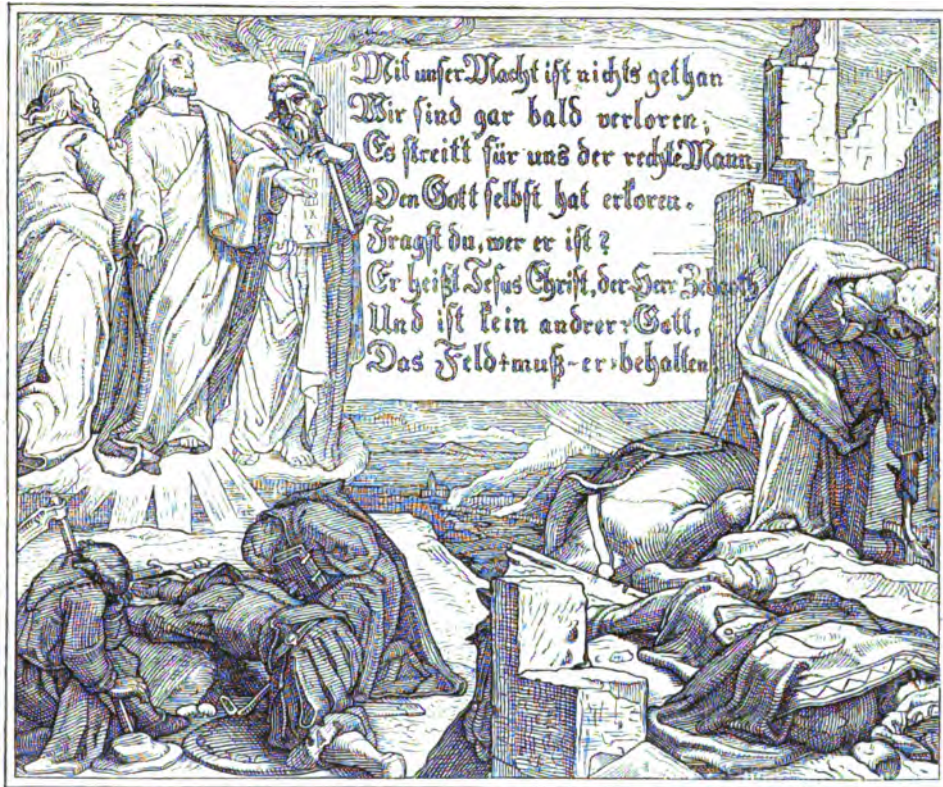 Mit unser Macht ist nichts gethan
Wir sind gar bald verloren;
Es streitt für uns der rechte Mann,
Den Gott selbst hat erkoren.
Fragst du, wer er ist?
Er heißt Jesus Christ, der Herr Zebaoth
Und ist kein andrer Gott,
Das Feld muß er behalten.
IX
X